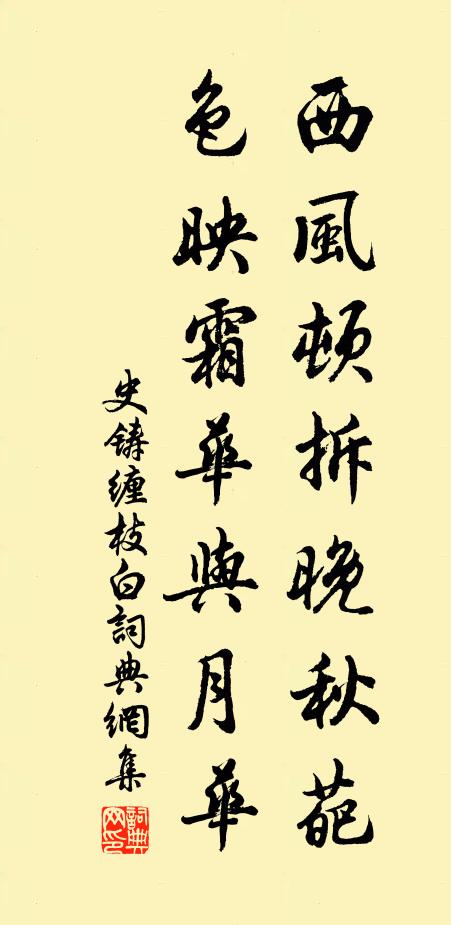 西風頓拆晚秋葩
色映霜華與月華
史鑄缠枝白詞典網集
詞典
网印